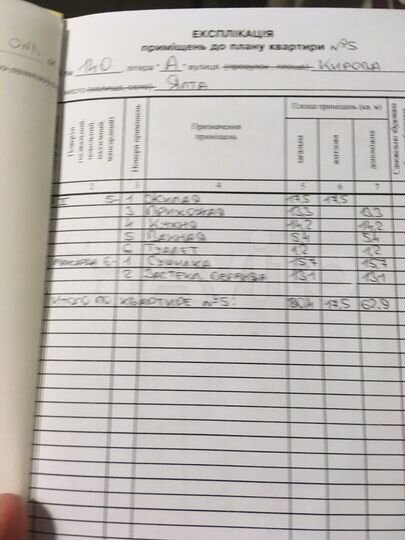 ЕКСПЛІКАЦІЯ
приміщень до плану квартири №5
140 літера "А" вулиця (провулок, площа) КИРОВА
місто (селище, село) ЯЛТА
Площа приміщень (кв. м)
Поверхи
Номери приміщень
Призначення приміщень
загальна
житлова
допоміжна
2 3 4 5 6 7
5- 1 ЖИЛАЯ 17,5 17,5
3 ПРИХОЖАЯ 13,3 13,3
4 КУХНЯ 14,2 14,2
5 ВАННАЯ 5,4 5,4
6 ТУАЛЕТ 1,2 1,2
6- 1 СУШИЛКА 15,7 15,7
2 ЗАСТЕКЛ. ВЕРАНДА 13,1 13,1
ИТОГО ПО КВАРТИРЕ №5: 80,4 17,5 62,9